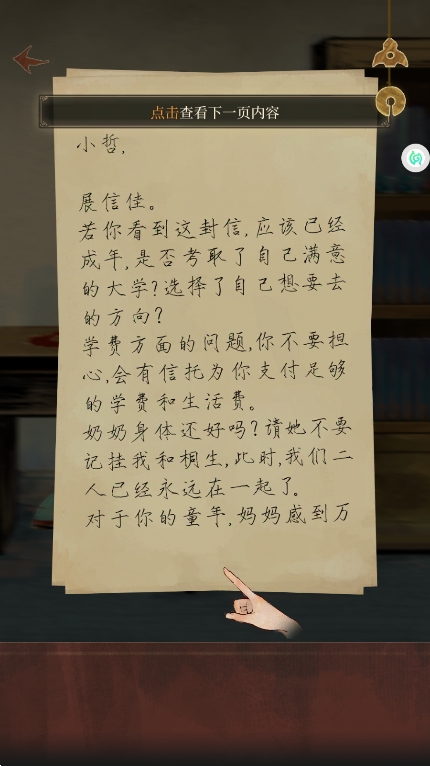 点击查看下一页内容
小哲,
展信佳。
若你看到这封信,应该已经
成年,是否考取了自己满意
的大学?选择了自己想要去
的方向?
学费方面的问题,你不要担
心,会有信托为你支付足够
的学费和生活费。
奶奶身体还好吗?请她不要
记挂我和桐生,此时,我们二
人已经永远在一起了。
对于你的童年,妈妈感到万